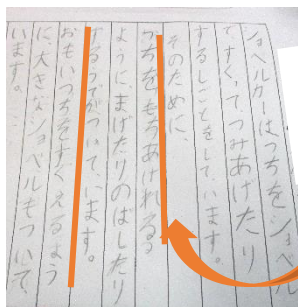 ショベルカーはつちをショベル
ですくって、つみあげたり
するしごとをしています。
そのために、
つちをもちあげれる
ように、まげたりのばしたり
するうでがついています。
おもいつちをすくえるよう
に、大きなショベルもついて
います。